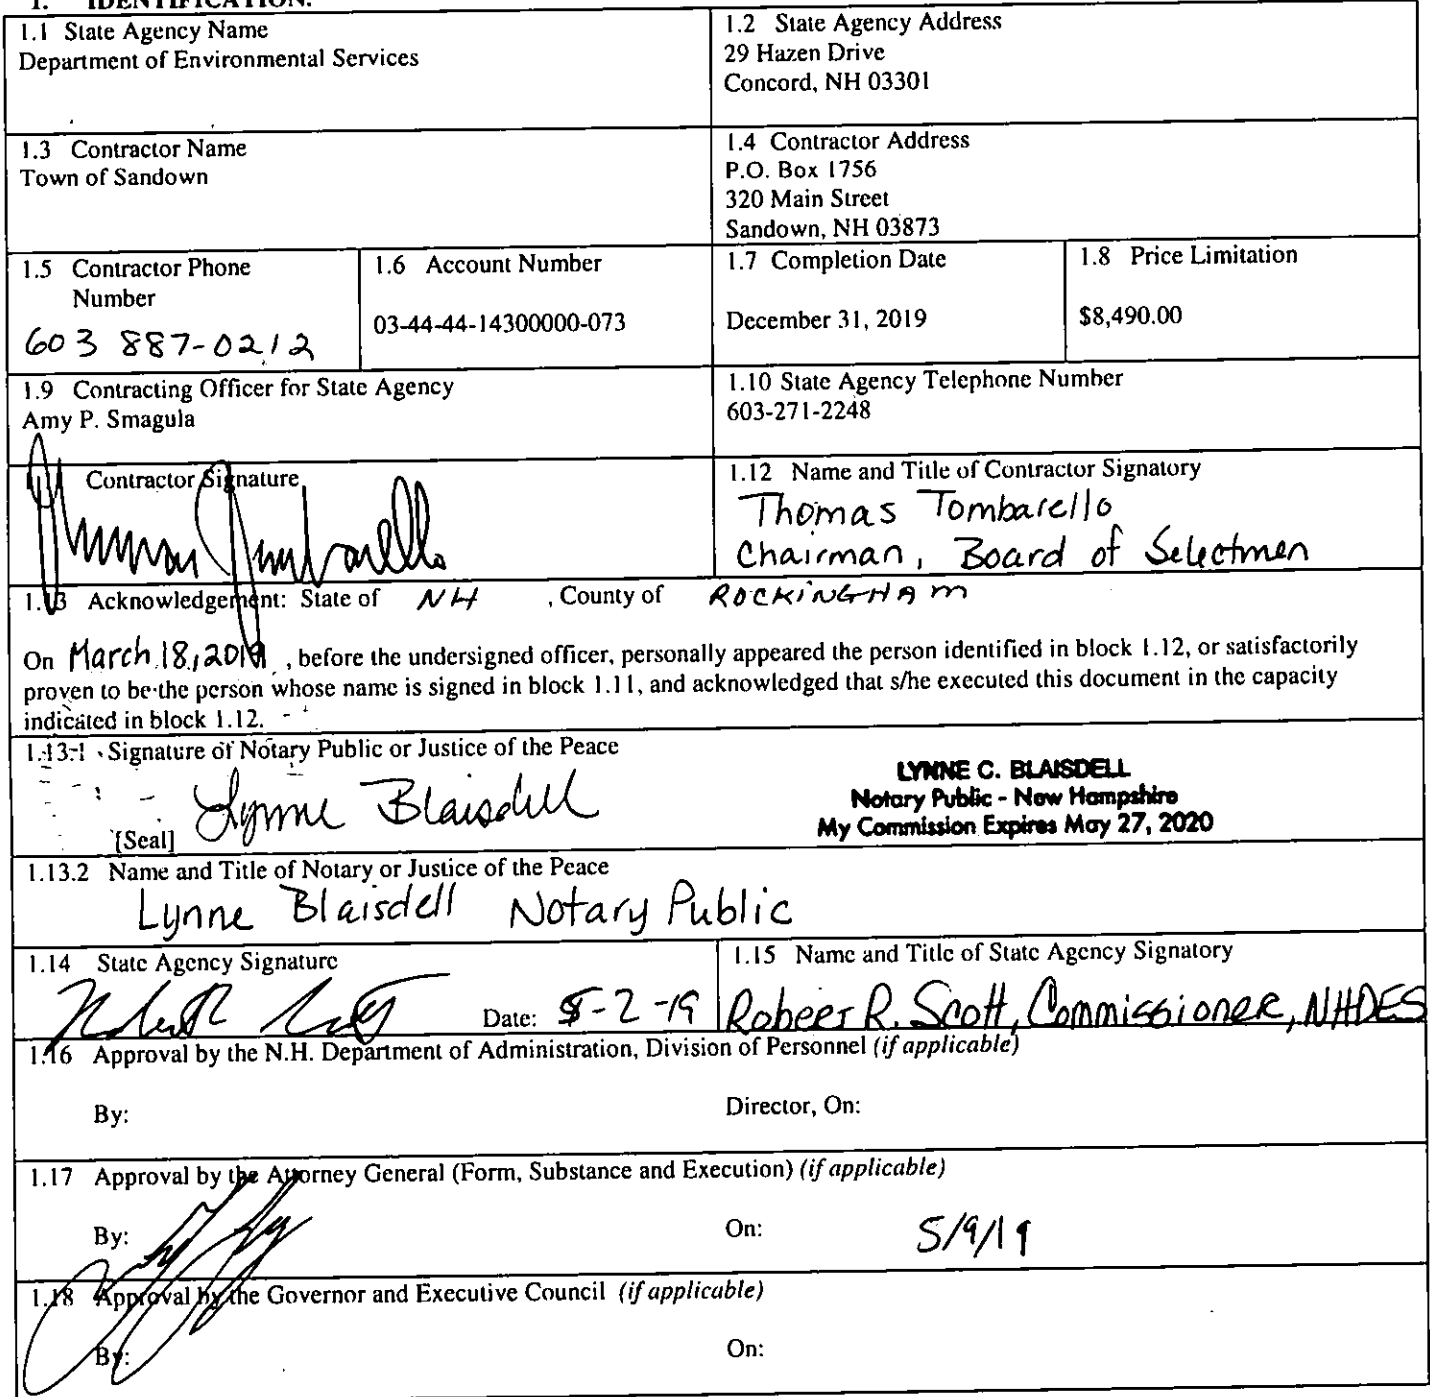 1. IDENTIFICATION.
1.1 State Agency Name
Department of Environmental Services
1.2 State Agency Address
29 Hazen Drive
Concord, NH 03301
1.3 Contractor Name
Town of Sandown
1.4 Contractor Address
P.O. Box 1756
320 Main Street
Sandown, NH 03873
1.5 Contractor Phone
Number
603 887-0212
1.6 Account Number
03-44-44-14300000-073
1.7 Completion Date
December 31, 2019
1.8 Price Limitation
$8,490.00
1.9 Contracting Officer for State Agency
Amy P. Smagula
1.10 State Agency Telephone Number
603-271-2248
Contractor Signature
1.12 Name and Title of Contractor Signatory
Thomas Tombarello
Chairman, Board of Selectmen
1.13 Acknowledgement: State of NH , County of ROCKINGHAM
On March 18, 2019 , before the undersigned officer, personally appeared the person identified in block 1.12, or satisfactorily
proven to be the person whose name is signed in block 1.11, and acknowledged that s/he executed this document in the capacity
indicated in block 1.12.
1.13.1 Signature of Notary Public or Justice of the Peace
Lynne Blaisdell
[Seal]
LYNNE C. BLAISDELL
Notary Public - New Hampshire
My Commission Expires May 27, 2020
1.13.2 Name and Title of Notary or Justice of the Peace
Lynne Blaisdell Notary Public
1.14 State Agency Signature
Date: 5-2-19
1.15 Name and Title of State Agency Signatory
Robert R. Scott, Commissioner, NHDES
1.16 Approval by the N.H. Department of Administration, Division of Personnel (if applicable)
By:
Director, On:
1.17 Approval by the Attorney General (Form, Substance and Execution) (if applicable)
By:
On: 5/9/19
1.18 Approval by the Governor and Executive Council (if applicable)
By:
On: